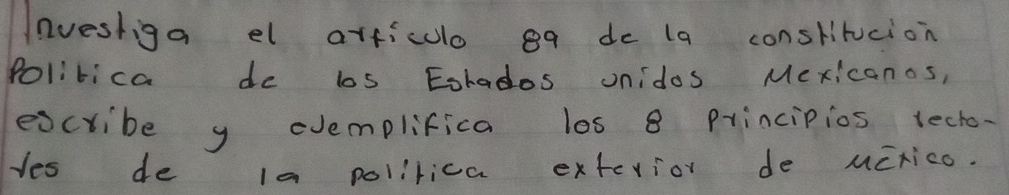 Investiga el artículo 89 de la constitución
Política de los Estados unidos Mexicanos,
escribe y ejemplifica los 8 principios recto-
res de la política exterior de México.